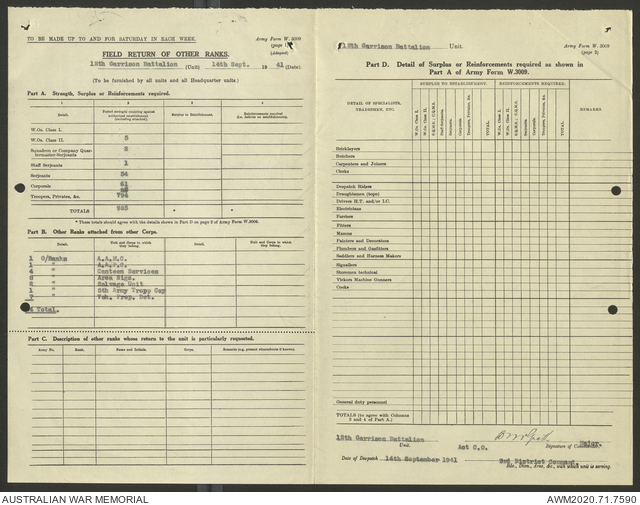 TO BE MADE UP TO AND FOR SATURDAY IN EACH WEEK.
Army Form W. 3009
(page 1)
(Adapted)
FIELD RETURN OF OTHER RANKS.
12th Garrison Battalion (Unit) 14th Sept. 1941 (Date).
(To be furnished by all units and all Headquarter units.)
Part A. Strength, Surplus or Reinforcements required.
1 2 3 4
Detail.
Posted strength counting against authorized establishment (excluding attached).
Surplus to Establishment.
Reinforcements required (i.e. deficits on establishment).
W.On. Class I.
W.On. Class II. 5
Squadron or Company Quartermaster-Serjeants 2
Staff Serjeants 1
Serjeants 54
Corporals 61
Troopers, Privates, &c. 794
TOTALS
* *
* These totals should agree with the details shown in Part D on page 2 of Army Form W.3009.
Part B. Other Ranks attached from other Corps.
Detail. Unit and Corps to which they belong. Detail. Unit and Corps to which they belong.
1 O/Ranks A.A.M.C.
1 " A.A.P.C.
4 " Canteen Services
" Area Sigs.
2 " Salvage Unit
1 " 5th Army Troop Coy
7 " Veh. Trsp. Det.
Total.
Part C. Description of other ranks whose return to the unit is particularly requested.
Army No. Rank. Name and Initials. Corps. Remarks (e.g. present whereabouts if known).
12th Garrison Battalion Unit.
Army Form W. 3009
(page 2)
Part D. Detail of Surplus or Reinforcements required as shown in
Part A of Army Form W.3009.
DETAIL OF SPECIALISTS, TRADESMEN, ETC.
SURPLUS TO ESTABLISHMENT. REINFORCEMENTS REQUIRED.
REMARKS
W.On. Class I. W.On. Class II. S.Q.M.S.; C.Q.M.S. Staff-Serjeants Serjeants Corporals Troopers, Privates, &c. TOTAL
W.On. Class I. W.On. Class II. S.Q.M.S.; C.Q.M.S. Staff-Serjeants Serjeants Corporals Troopers, Privates, &c. TOTAL
Bricklayers
Butchers
Carpenters and Joiners
Clerks
Despatch Riders
Draughtsmen (topo)
Drivers H.T. and/or I.C.
Electricians
Farriers
Fitters
Masons
Painters and Decorators
Plumbers and Gasfitters
Saddlers and Harness Makers
Signallers
Storemen technical
Vickers Machine Gunners
Cooks
General duty personnel
TOTALS (to agree with Columns 3 and 4 of Part A.)
12th Garrison Battalion
Unit.
Major.
Act C.O. Signature of Commander.
Date of Despatch 14th September 1941
3rd District Command.
Bde., Divn., Area, &c., with which unit is serving.
AUSTRALIAN WAR MEMORIAL
AWM2020.71.7590